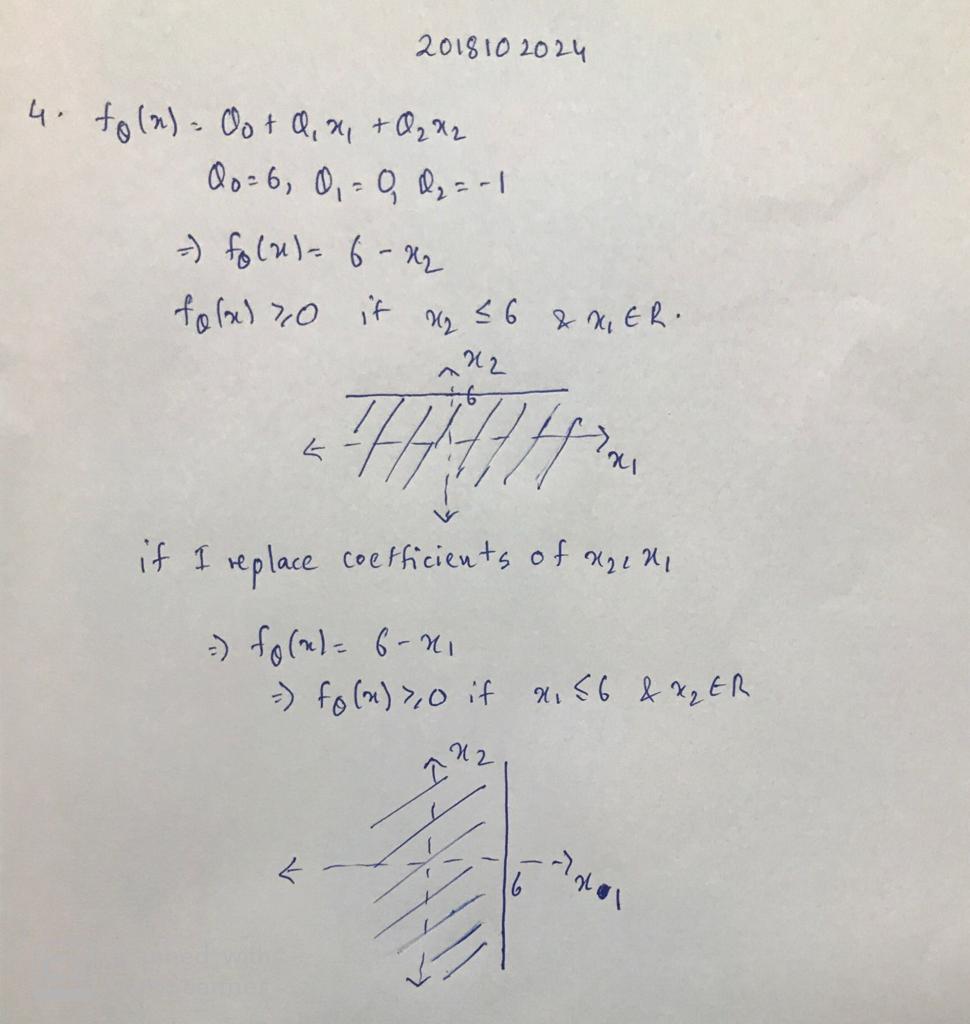 2018102024
4. fθ(x) = θ0 + θ1 x1 + θ2 x2
θ0 = 6, θ1 = 0, θ2 = -1
⇒ fθ(x) = 6 - x2
fθ(x) ≥ 0 if x2 ≤ 6 & x1 ∈ R.
x2
6
x1
if I replace coefficients of x2 & x1
⇒ fθ(x) = 6 - x1
⇒ fθ(x) ≥ 0 if x1 ≤ 6 & x2 ∈ R
x2
6
x1